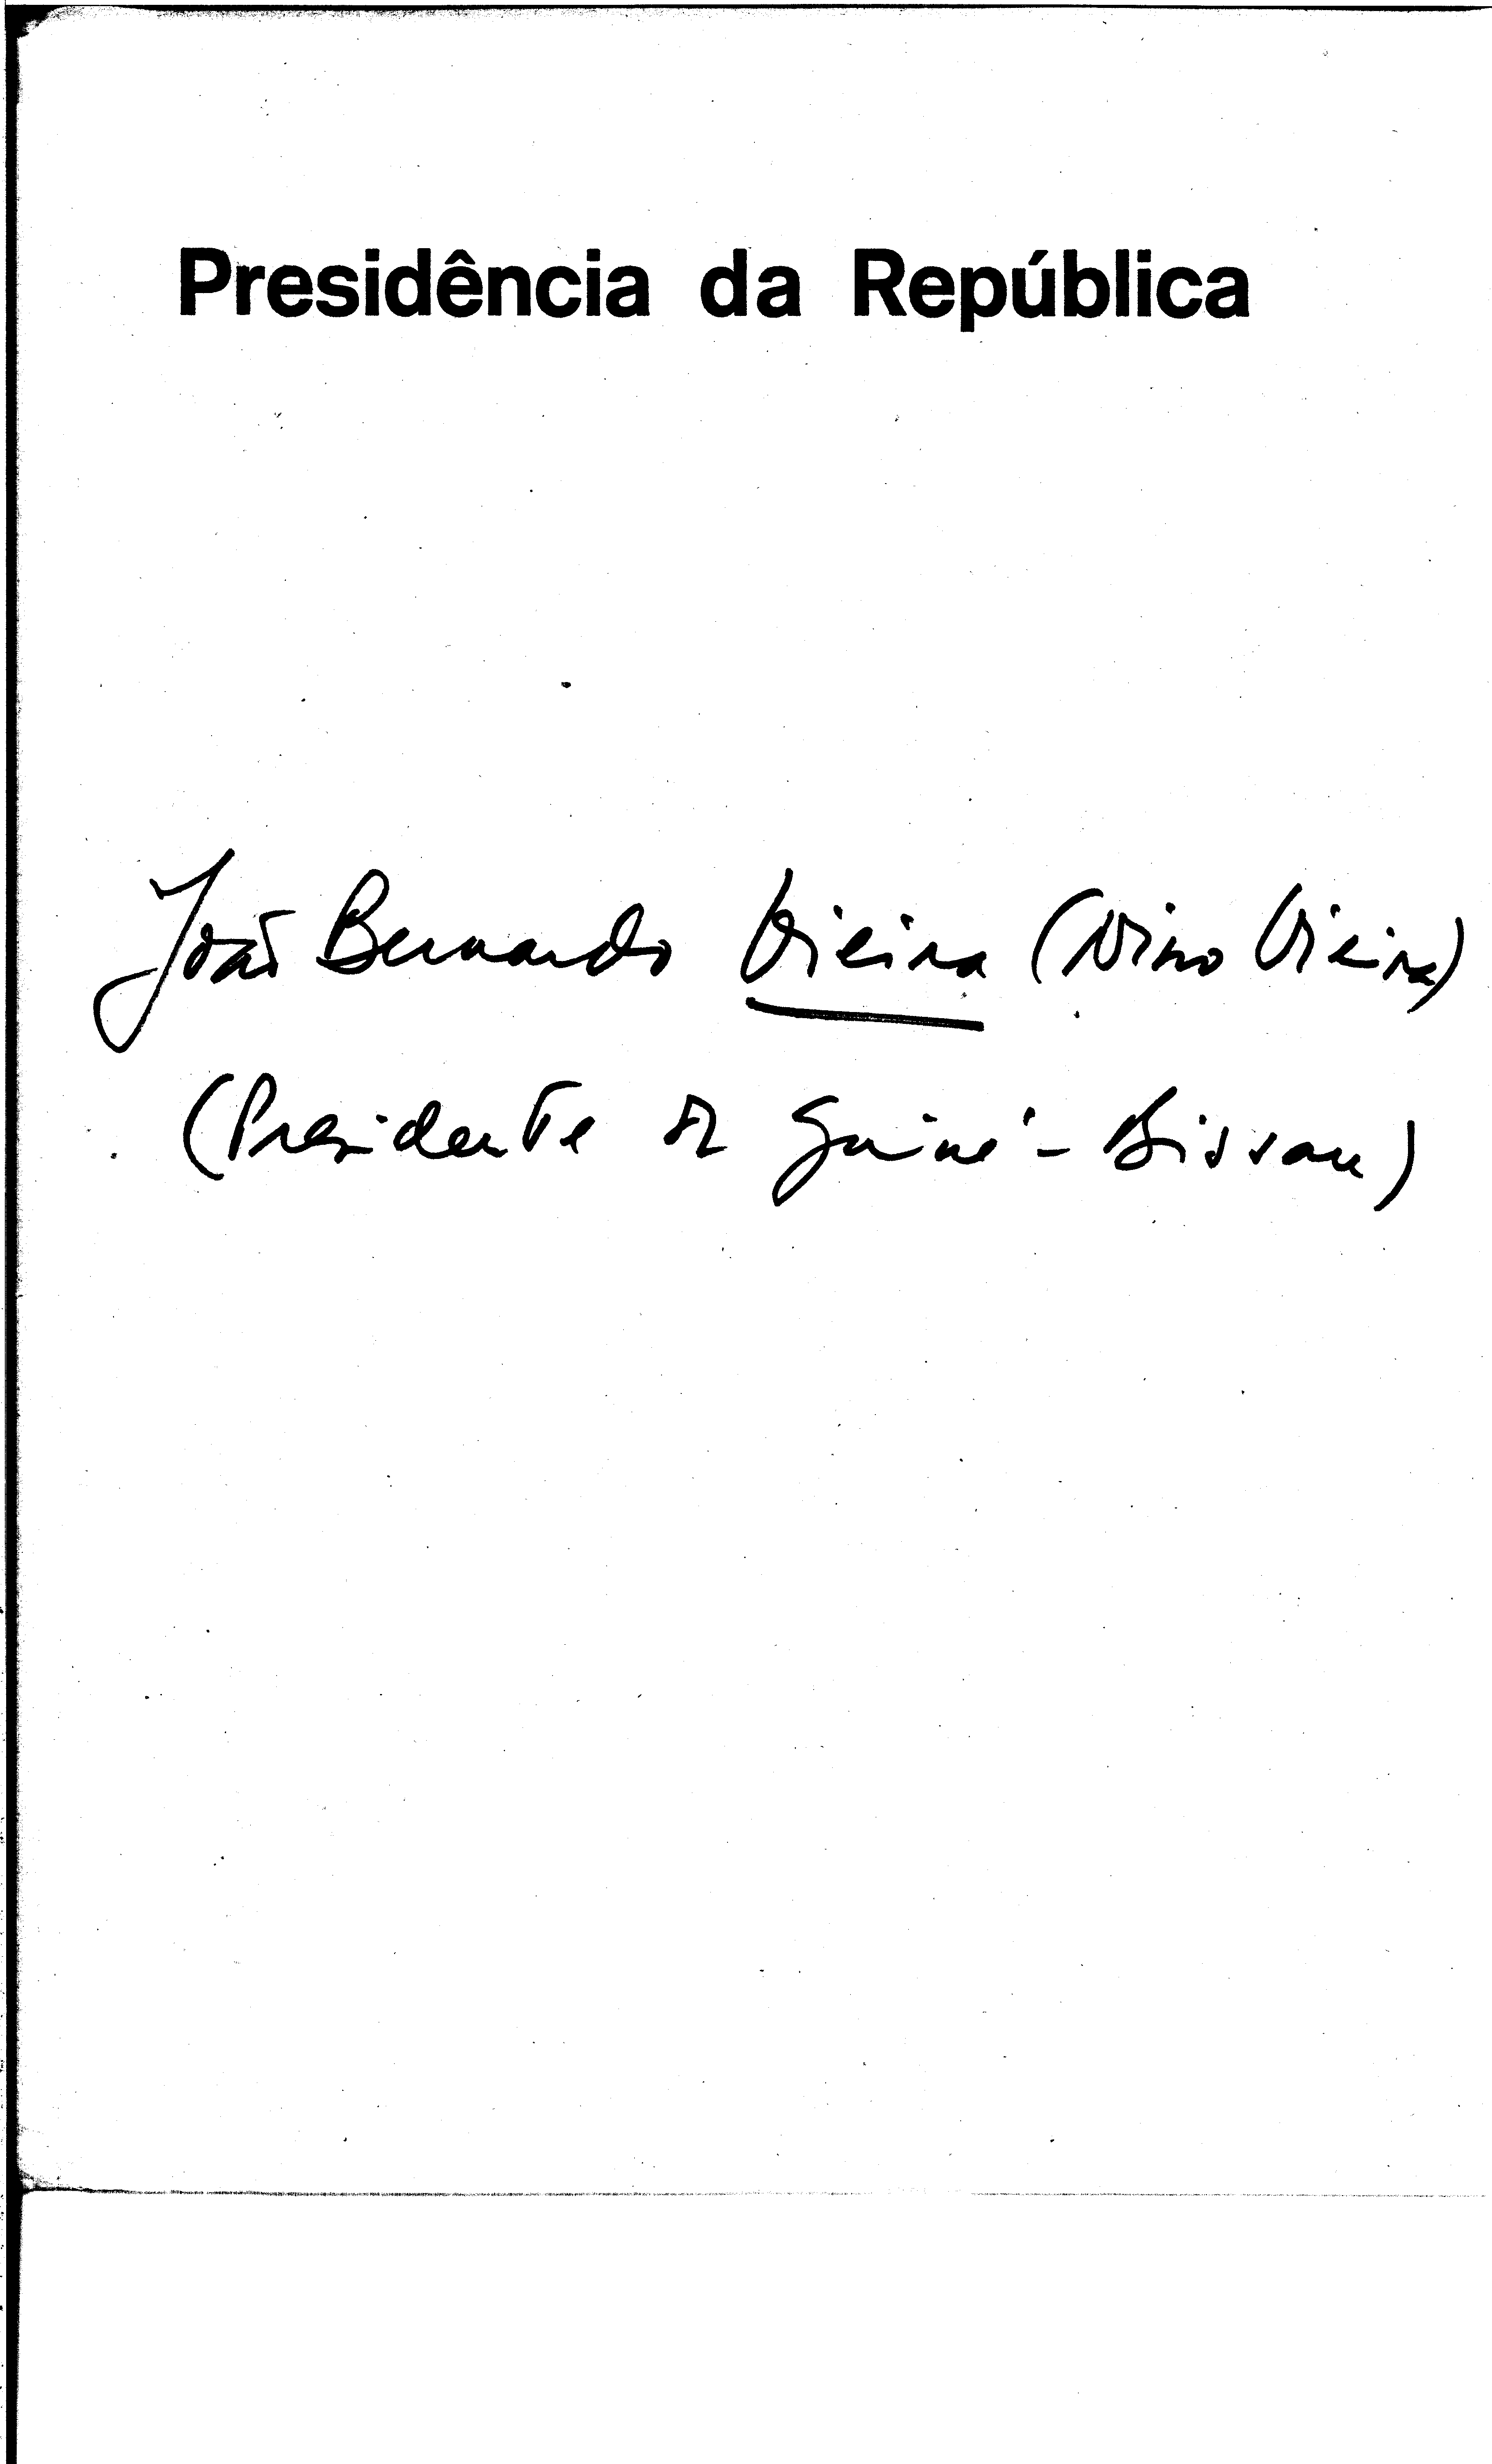 Presidência da República
João Bernardo Vieira (Nino Vieira)
(Presidente da Guiné-Bissau)